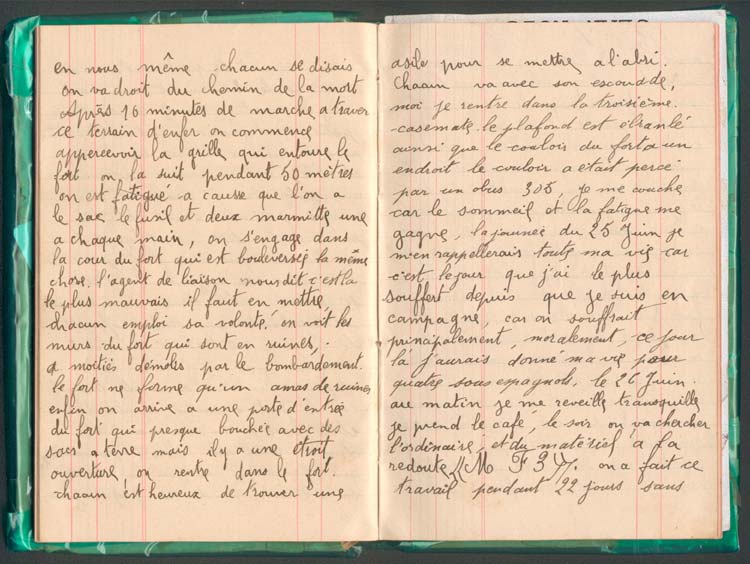 en nous même chacun se disais
on va droit du chemin de la mort
Après 16 minutes de marche a traver
ce terrain d'enfer on commence
appercevoir la grille qui entoure le
fort on la suit pendant 50 mètres
on est fatigué a causse que l'on a
le sac le fusil et deux marmitte une
a chaque main, on s'engage dans
la cour du fort qui est bouleversée la même
chose. l'agent de liaison nous dit c'est la
le plus mauvais il faut en mettre,
chacun emploi sa volonté, on voit les
murs du fort qui sont en ruines,
a moitiés démoles par le bombardement.
le fort ne forme qu'un amas de ruines
enfin on arrive a une porte d'entrée
du fort qui presque bouchée avec des
sacs a terre mais il y a une étroit
ouverture, on rentre dans le fort.
chacun est heureux de trouver une
asile pour se mettre a l'abri.
Chacun va avec son escouade,
moi je rentre dans la troisième.
casemate. le plafond est ébranlé
ainsi que le couloir du fort a un
endroit le couloir a était percé
par un obus 305, je me couche
car le sommeil et la fatigue me
gagne, la journée du 25 Juin je
m'en rappellerais toute ma vie car
c'est le jour que j'ai le plus
souffert depuis que je suis en
campagne, car on souffrait
principalement, moralement, ce jour
là j'aurais donné ma vie pour
quatre sous espagnols, le 26 Juin.
au matin je me reveille transquille
je prend le café, le soir on va chercher
l'ordinaire, et du matériel a la
redoute, M F 3 7. on a fait ce
travail pendant 22 jours sans